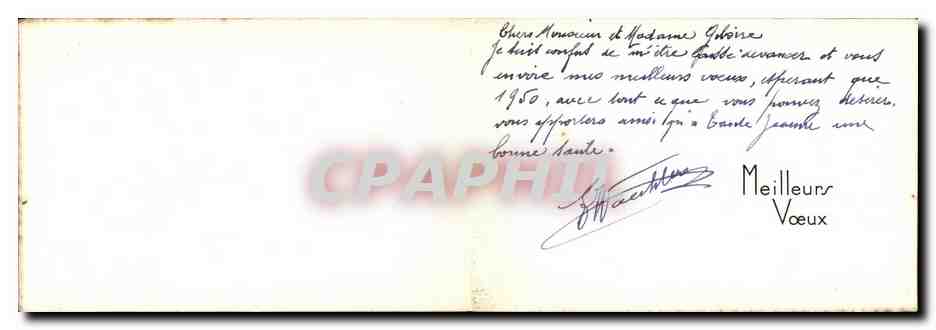 Chers Monsieur et Madame
Je suis confus de m'être laissé devancer et vous
envoie mes meilleurs voeux, espérant que
1950, avec tout ce que vous pouvez désirer,
vous apportera ainsi qu'à Tante Jeanne une
bonne santé.
CPAPHIL
Meilleurs
Vœux